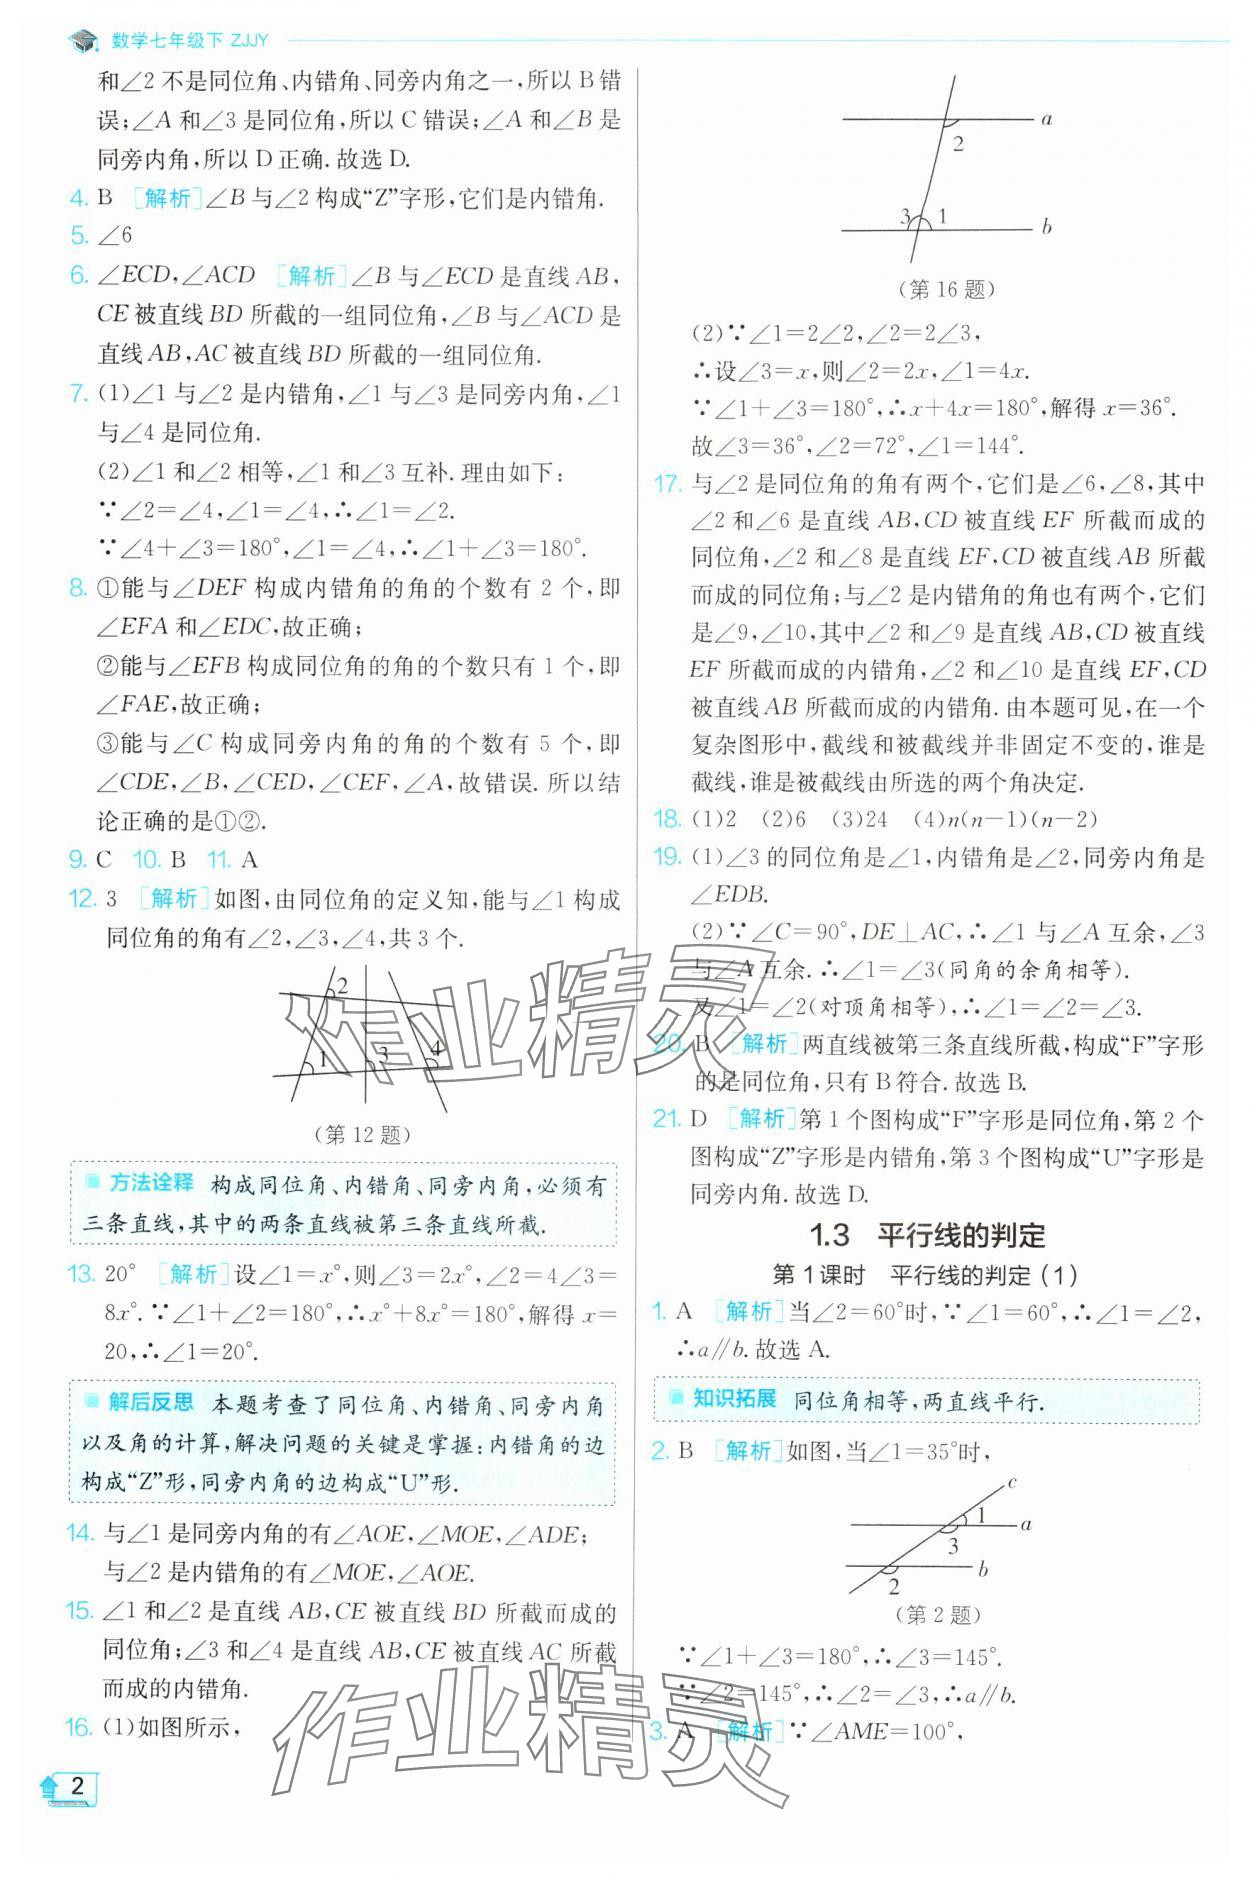 数学七年级下 ZJJY
和∠2 不是同位角、内错角、同旁内角之一,所以 B 错
误;∠A 和∠3 是同位角,所以 C 错误;∠A 和∠B 是
同旁内角,所以 D 正确. 故选 D.
4. B [解析]∠B 与∠2 构成“Z”字形,它们是内错角.
5. ∠6
6. ∠ECD,∠ACD [解析]∠B 与∠ECD 是直线 AB,
CE 被直线 BD 所截的一组同位角,∠B 与∠ACD 是
直线 AB,AC 被直线 BD 所截的一组同位角.
7. (1)∠1 与∠2 是内错角,∠1 与∠3 是同旁内角,∠1
与∠4 是同位角.
(2)∠1 和∠2 相等,∠1 和∠3 互补. 理由如下:
∵∠2=∠4,∠1=∠4,∴∠1=∠2.
∵∠4+∠3=180°,∠1=∠4,∴∠1+∠3=180°.
8. ①能与∠DEF 构成内错角的角的个数有 2 个,即
∠EFA 和∠EDC,故正确;
②能与∠EFB 构成同位角的角的个数只有 1 个,即
∠FAE,故正确;
③能与∠C 构成同旁内角的角的个数有 5 个,即
∠CDE,∠B,∠CED,∠CEF,∠A,故错误. 所以结
论正确的是①②.
9. C 10. B 11. A
12. 3 [解析]如图,由同位角的定义知,能与∠1 构成
同位角的角有∠2,∠3,∠4,共 3 个.
2
1 3 4
(第 12 题)
方法诠释 构成同位角、内错角、同旁内角,必须有
三条直线,其中的两条直线被第三条直线所截.
13. 20° [解析]设∠1=x°,则∠3=2x°,∠2=4∠3=
8x°. ∵∠1+∠2=180°,∴x°+8x°=180°,解得 x=
20,∴∠1=20°.
解后反思 本题考查了同位角、内错角、同旁内角
以及角的计算,解决问题的关键是掌握:内错角的边
构成“Z”形,同旁内角的边构成“U”形.
14. 与∠1 是同旁内角的有∠AOE,∠MOE,∠ADE;
与∠2 是内错角的有∠MOE,∠AOE.
15. ∠1 和∠2 是直线 AB,CE 被直线 BD 所截而成的
同位角;∠3 和∠4 是直线 AB,CE 被直线 AC 所截
而成的内错角.
16. (1)如图所示,
2
a
2
3 1
b
(第 16 题)
(2)∵∠1=2∠2,∠2=2∠3,
∴设∠3=x,则∠2=2x,∠1=4x.
∵∠1+∠3=180°,∴x+4x=180°,解得 x=36°.
故∠3=36°,∠2=72°,∠1=144°.
17. 与∠2 是同位角的角有两个,它们是∠6,∠8,其中
∠2 和∠6 是直线 AB,CD 被直线 EF 所截而成的
同位角,∠2 和∠8 是直线 EF,CD 被直线 AB 所截
而成的同位角;与∠2 是内错角的角也有两个,它们
是∠9,∠10,其中∠2 和∠9 是直线 AB,CD 被直线
EF 所截而成的内错角,∠2 和∠10 是直线 EF,CD
被直线 AB 所截而成的内错角. 由本题可见,在一个
复杂图形中,截线和被截线并非固定不变的,谁是
截线,谁是被截线由所选的两个角决定.
18. (1)2 (2)6 (3)24 (4)n(n-1)(n-2)
19. (1)∠3 的同位角是∠1,内错角是∠2,同旁内角是
∠EDB.
(2)∵∠C=90°,DE⊥AC,∴∠1 与∠A 互余,∠3
与∠A 互余. ∴∠1=∠3(同角的余角相等).
又∠1=∠2(对顶角相等),∴∠1=∠2=∠3.
20. B [解析]两直线被第三条直线所截,构成“F”字形
的是同位角,只有 B 符合. 故选 B.
21. D [解析]第 1 个图构成“F”字形是同位角,第 2 个
图构成“Z”字形是内错角,第 3 个图构成“U”字形是
同旁内角. 故选 D.
1.3 平行线的判定
第 1 课时 平行线的判定(1)
1. A [解析]当∠2=60°时,∵∠1=60°,∴∠1=∠2,
∴a∥b. 故选 A.
知识拓展 同位角相等,两直线平行.
2. B [解析]如图,当∠1=35°时,
c
1
a
3
b
2
(第 2 题)
∵∠1+∠3=180°,∴∠3=145°.
∵∠2=145°,∴∠2=∠3,∴a∥b.
3. A [解析]∵∠AME=100°,
作业精灵
作业精灵